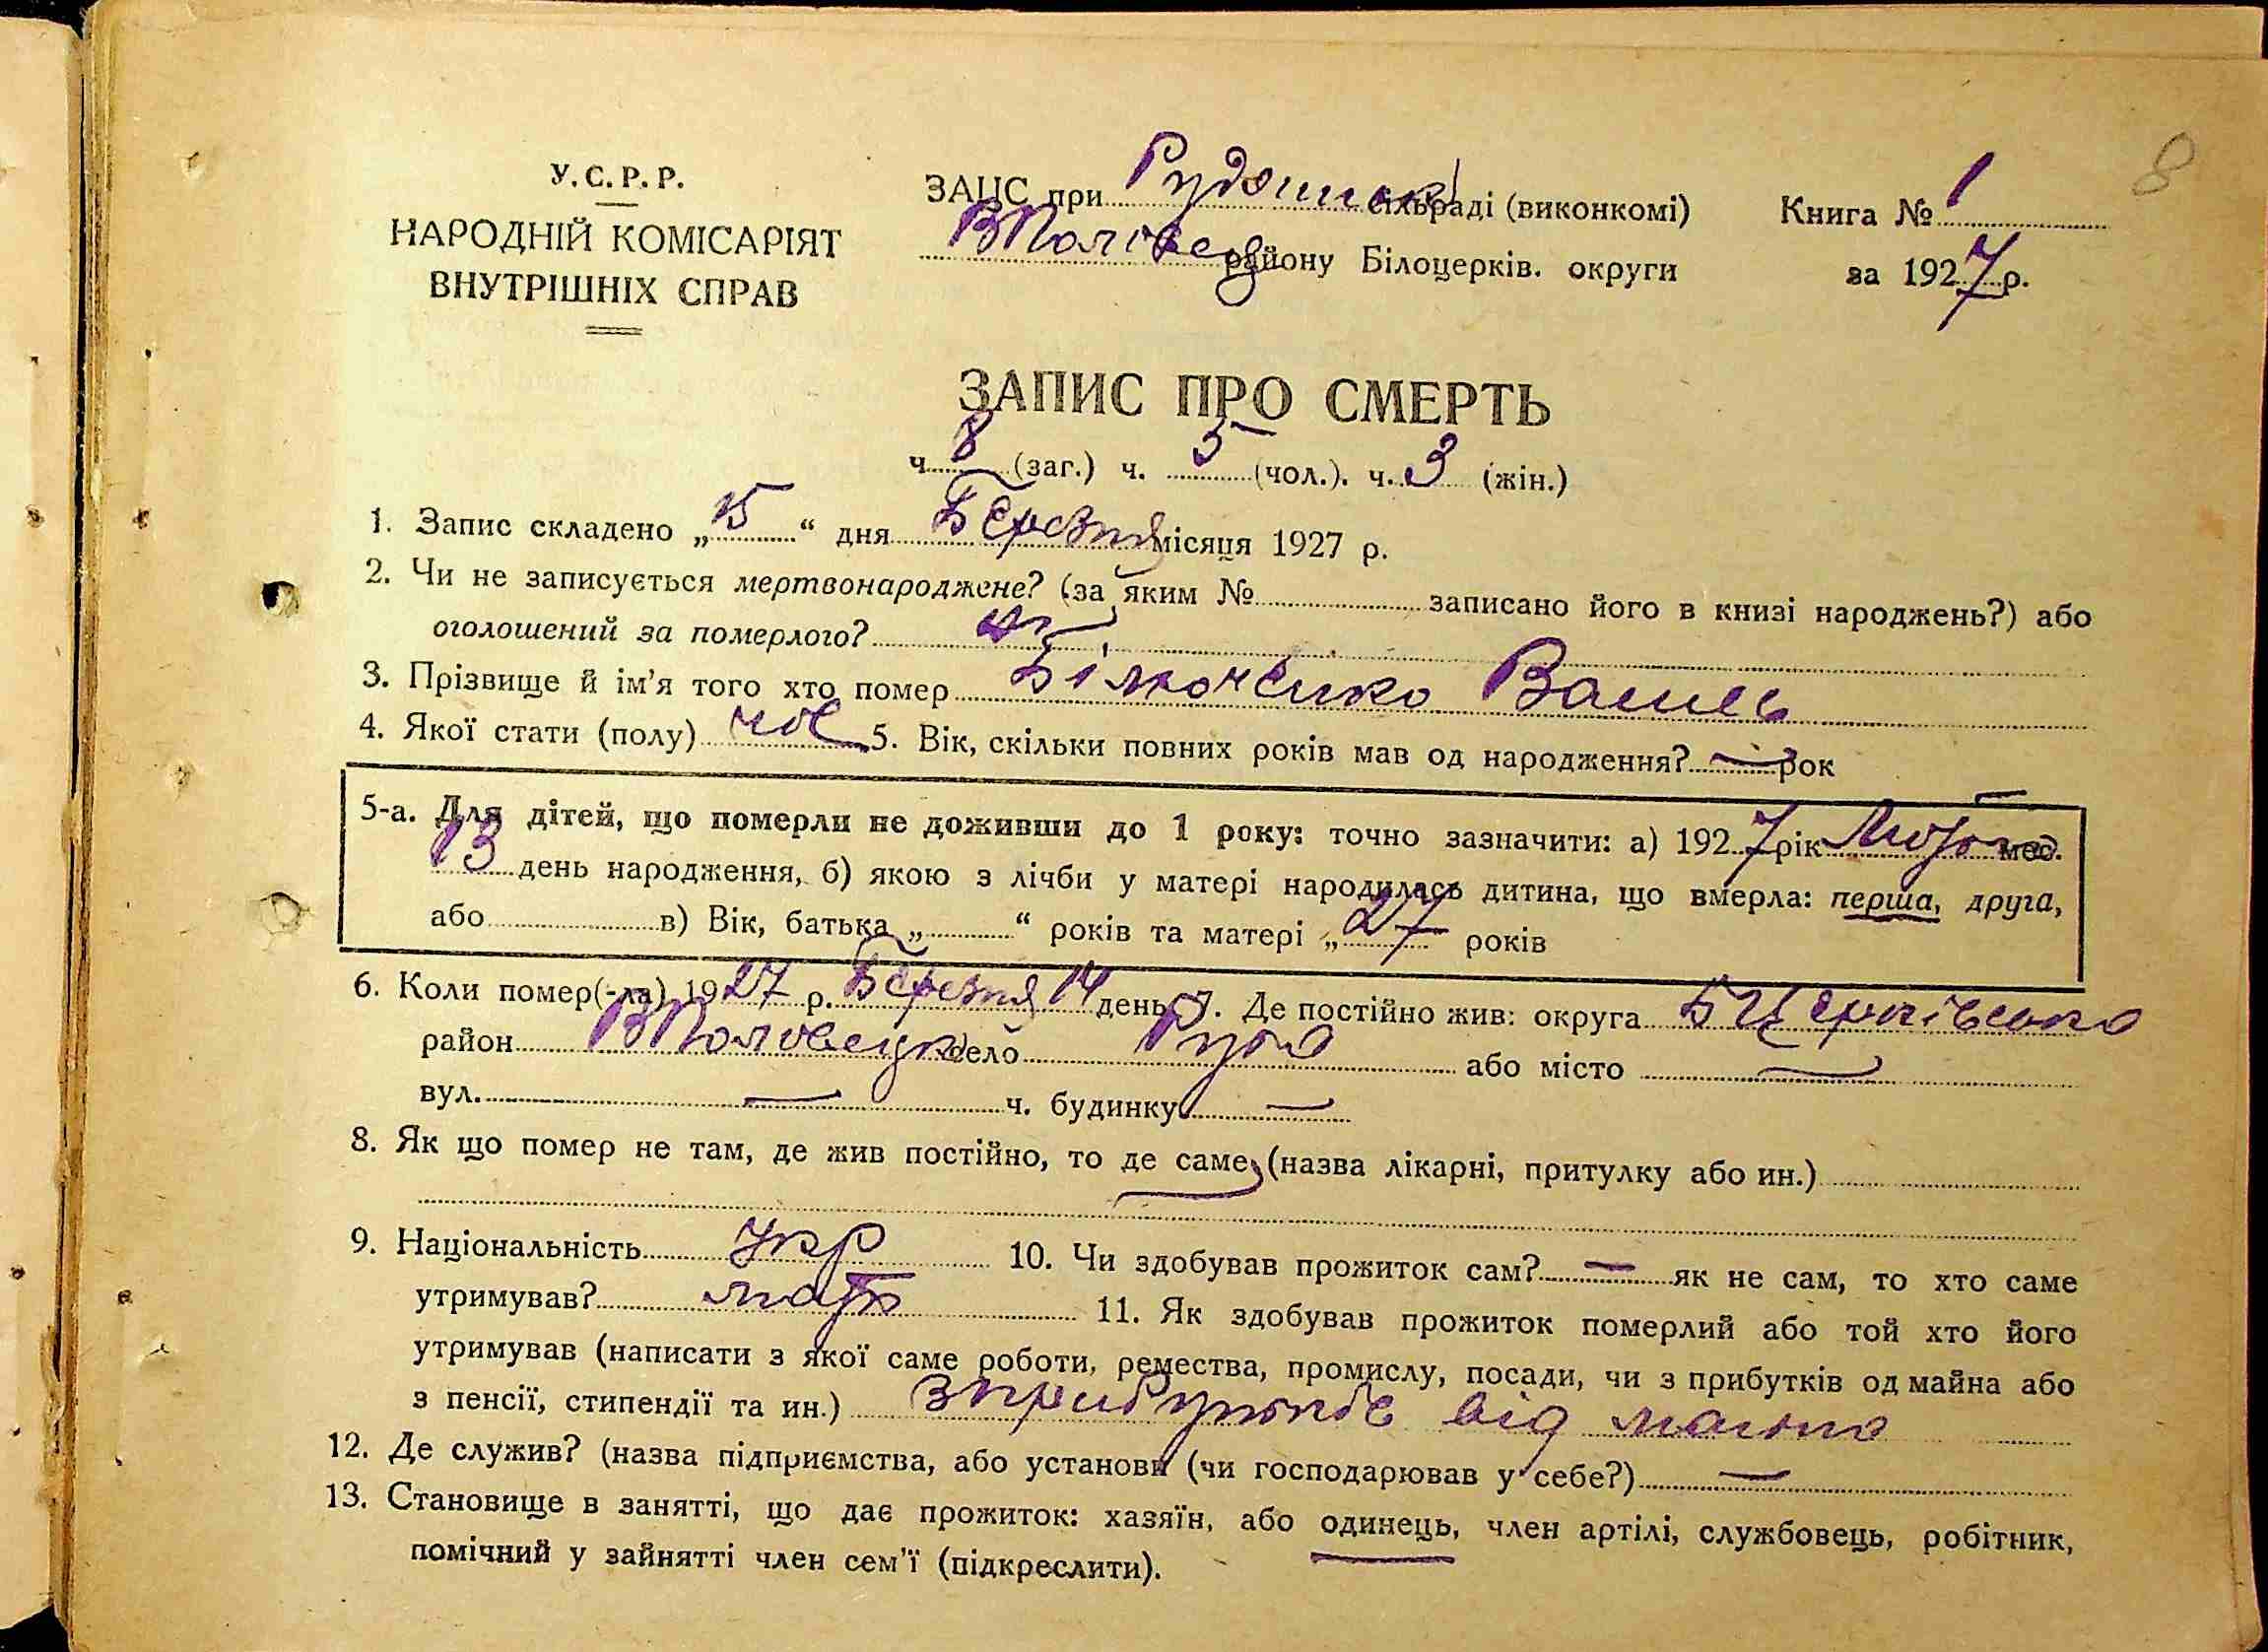 8
У.С.Р.Р.
НАРОДНІЙ КОМІСАРІЯТ
ВНУТРІШНІХ СПРАВ
ЗАЦС при сільраді (виконкомі)
ВПоловец району Білоцерків. округи
Книга № 1
за 1927 р.
ЗАПИС ПРО СМЕРТЬ
ч. 8 (заг.) ч. 5 (чол.). ч. 3 (жін.)
1. Запис складено „15“ дня Березня місяця 1927 р.
2. Чи не записується мертвонароджене? (за яким № записано його в книзі народжень?) або
оголошений за померлого?
3. Прізвище й ім’я того хто помер Більченко Василь
4. Якої стати (полу) чол 5. Вік, скільки повних років мав од народження? — рок
5-а. Для дітей, що померли не доживши до 1 року: точно зазначити: а) 1927 рік Лютого мес.
13 день народження, б) якою з лічби у матері народилась дитина, що вмерла: перша, друга,
або в) Вік, батька „ “ років та матері „27 років
6. Коли помер(-ла) 1927 р. Березня 14 день 7. Де постійно жив: округа БЦерківська
район ВПоловецьк село Руда або місто —
вул. — ч. будинку —
8. Як що помер не там, де жив постійно, то де саме (назва лікарні, притулку або ин.)
9. Національність Укр 10. Чи здобував прожиток сам? — як не сам, то хто саме
утримував? мати 11. Як здобував прожиток померлий або той хто його
утримував (написати з якої саме роботи, ремества, промислу, посади, чи з прибутків од майна або
з пенсії, стипендії та ин.) з прибутків від майна
12. Де служив? (назва підприємства, або установи (чи господарював у себе?) —
13. Становище в занятті, що дає прожиток: хазяїн, або одинець, член артілі, службовець, робітник,
помічний у зайнятті член сем’ї (підкреслити).